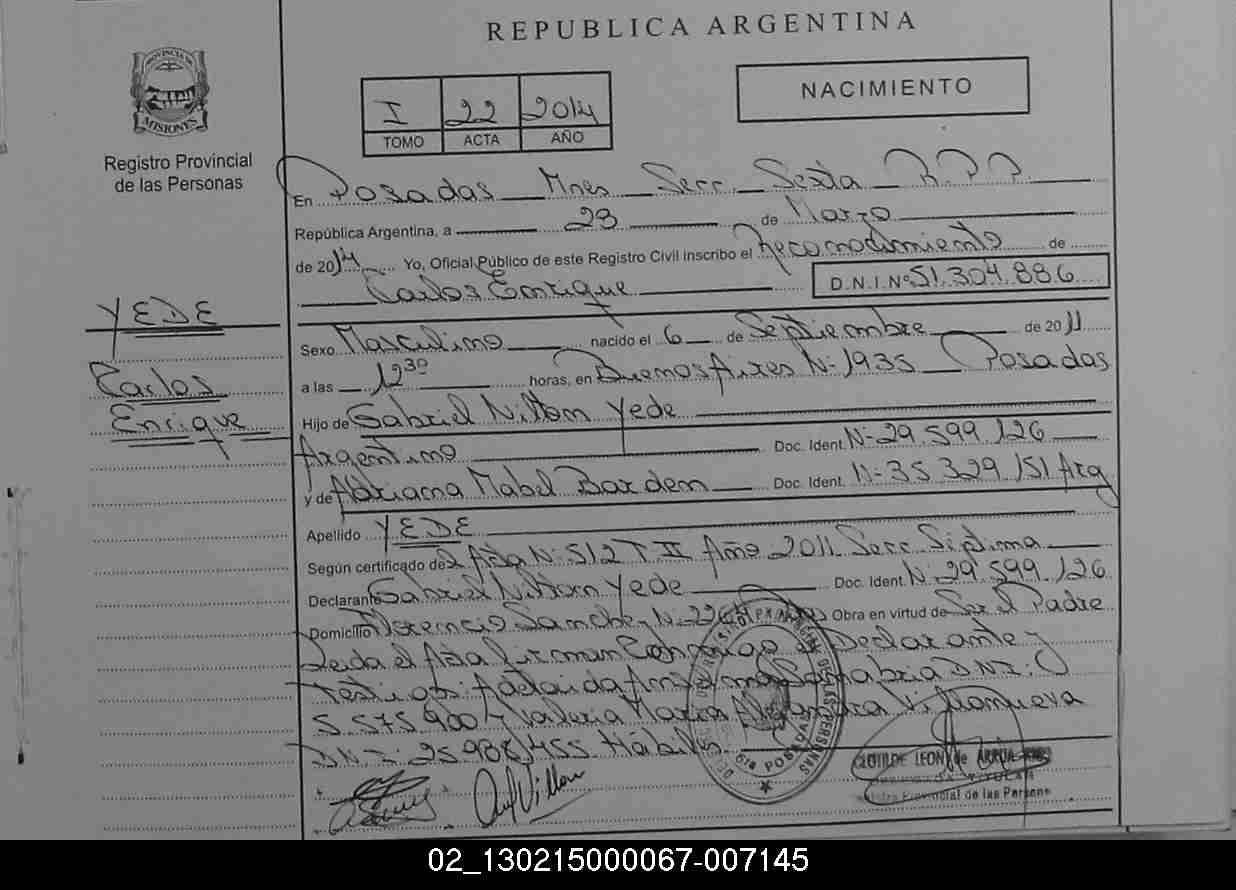 REPUBLICA ARGENTINA
PROVINCIA DE
MISIONES
Registro Provincial
de las Personas
I 22 2014
TOMO ACTA AÑO
NACIMIENTO
En Posadas Mnes Secc. Sexta R.P.P
República Argentina, a 28 de Marzo
de 2014 Yo, Oficial Público de este Registro Civil inscribo el Reconocimiento de
Carlos Enrique D.N.I.Nº 51.304.886
YEDE
Carlos
Enrique
Sexo Masculino nacido el 6 de Septiembre de 2011
a las 12 30 horas, en Buenos Aires N: 1935 Posadas
Hijo de Gabriel Nilton Yede
Argentino Doc. Ident. N: 29.599.126
y de Adriana Mabel Bardem Doc. Ident. N: 35 329 151 Arg
Apellido YEDE
Según certificado de Acta N: 512 T II Año 2011 Secc Séptima
Declarante Gabriel Nilton Yede Doc. Ident. N: 29.599.126
Domicilio Florencio Sanchez N: Obra en virtud de Ser el Padre
Leida el Acta firman Conmigo el Declarante y
Testigos: Adelaida DNI:
5.575.900 y Valeria María Alejandra Villanueva
DNI: 25.986.455 Hábiles
CLOTILDE LEON de ARRUA
Registro Provincial de las Personas
02_130215000067-007145